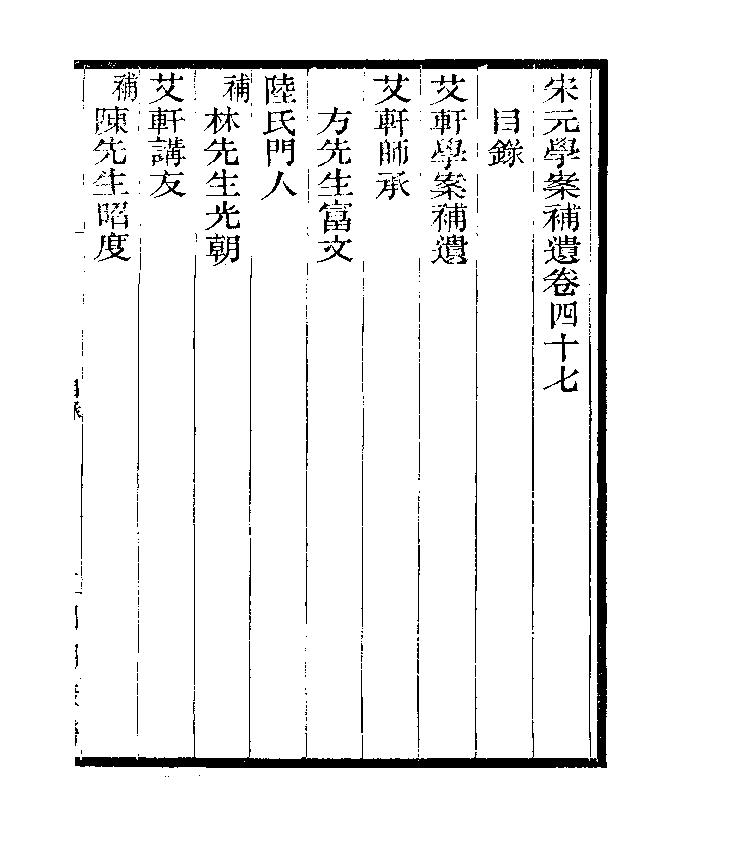 宋元學案補遺卷四十七
目錄
艾軒學案補遺
艾軒師承
方先生富文
陸氏門人
補林先生光朝
艾軒講友
補陳先生昭度
目錄